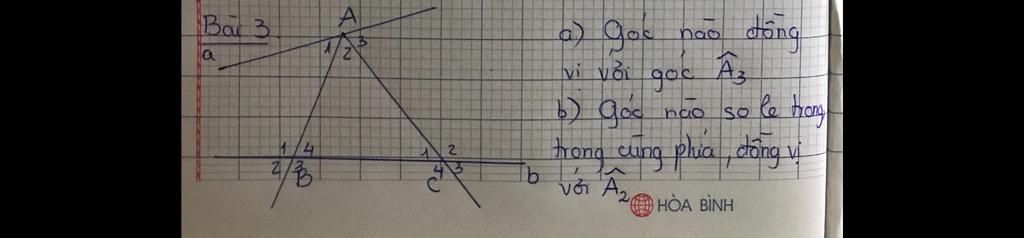 Bài 3
a
A
1 2 3
1 4
2 3
B
1 2
4 3
C
b
a) Góc nào đồng
vị với góc Â3
b) Góc nào so le trong,
trong cùng phía, đồng vị
với Â2
HÒA BÌNH